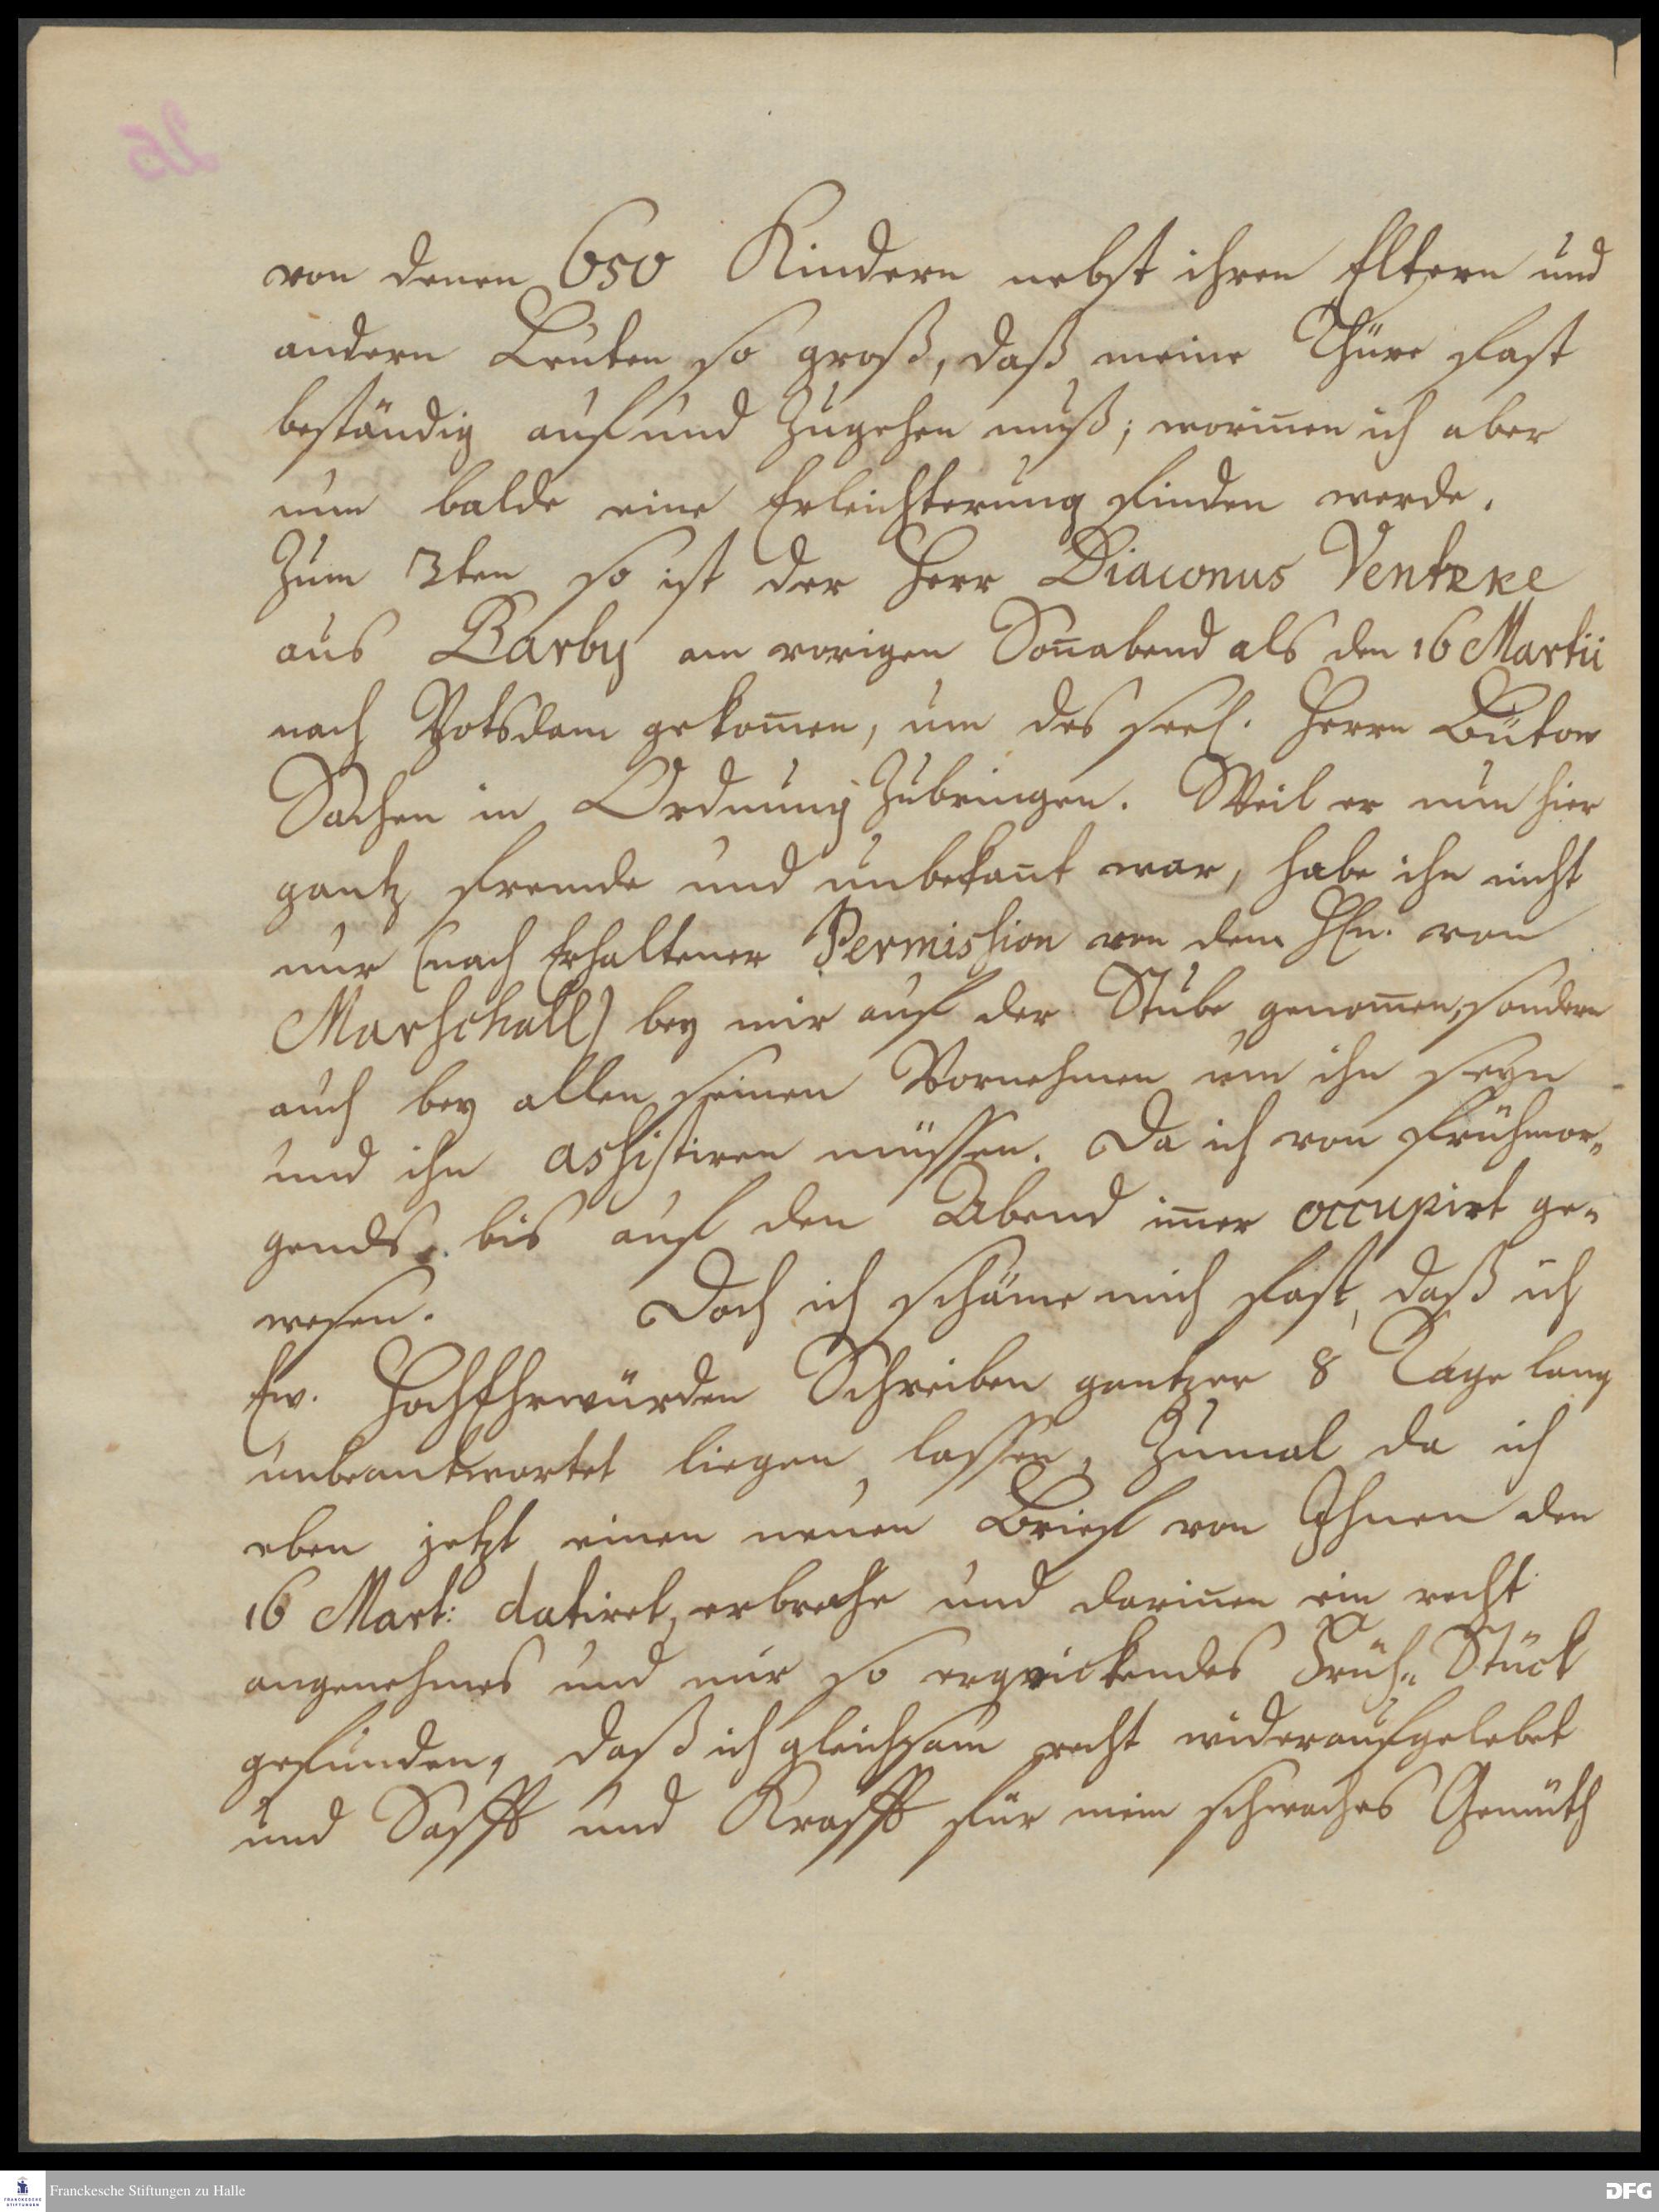 von denen 650 Kindern nebst ihren Eltern und
andern Leuten so groß, daß meine Thüre fast
beständig auf und zugehen muß; woriñen ich aber
nun balde eine Erleichterung finden werde.
Zum 3ten so ist der Herr Diaconus Ventzke
aus Barby am vorigen Soñabend als den 16 Martii
nach Potsdam gekom̃en, um des seel. Herrn Bütow
Sachen in Ordnung zubringen. Weil er nun hier
gantz fremde und unbekañt war, habe ihn nicht
nur (nach Erhaltener Permission von dem HEn. von
Marschall) bey mir auf der Stube genom̃en, sondern
auch bey allen seinen Vornehmen um ihn seyn
und ihn assistiren müssen. Da ich von frühmor„
gends bis auf den Abend im̃er occupirt ge„
wesen. Doch ich schäme mich fast, daß ich
Ew. HochEhrwürden Schreiben gantzer 8 Tage lang
unbeantwortet liegen lassen, zumal da ich
eben jetzt einen neuen Brief von Ihnen den
16 Mart: datiret, erbreche und dariñen ein recht
angenehmes und mir so erqvickendes Früh„ Stück
gefunden, daß ich gleichsam recht wideraufgelebet
und Safft und Krafft für mein schwaches Gemüth
26
Franckesche Stiftungen zu Halle
DFG